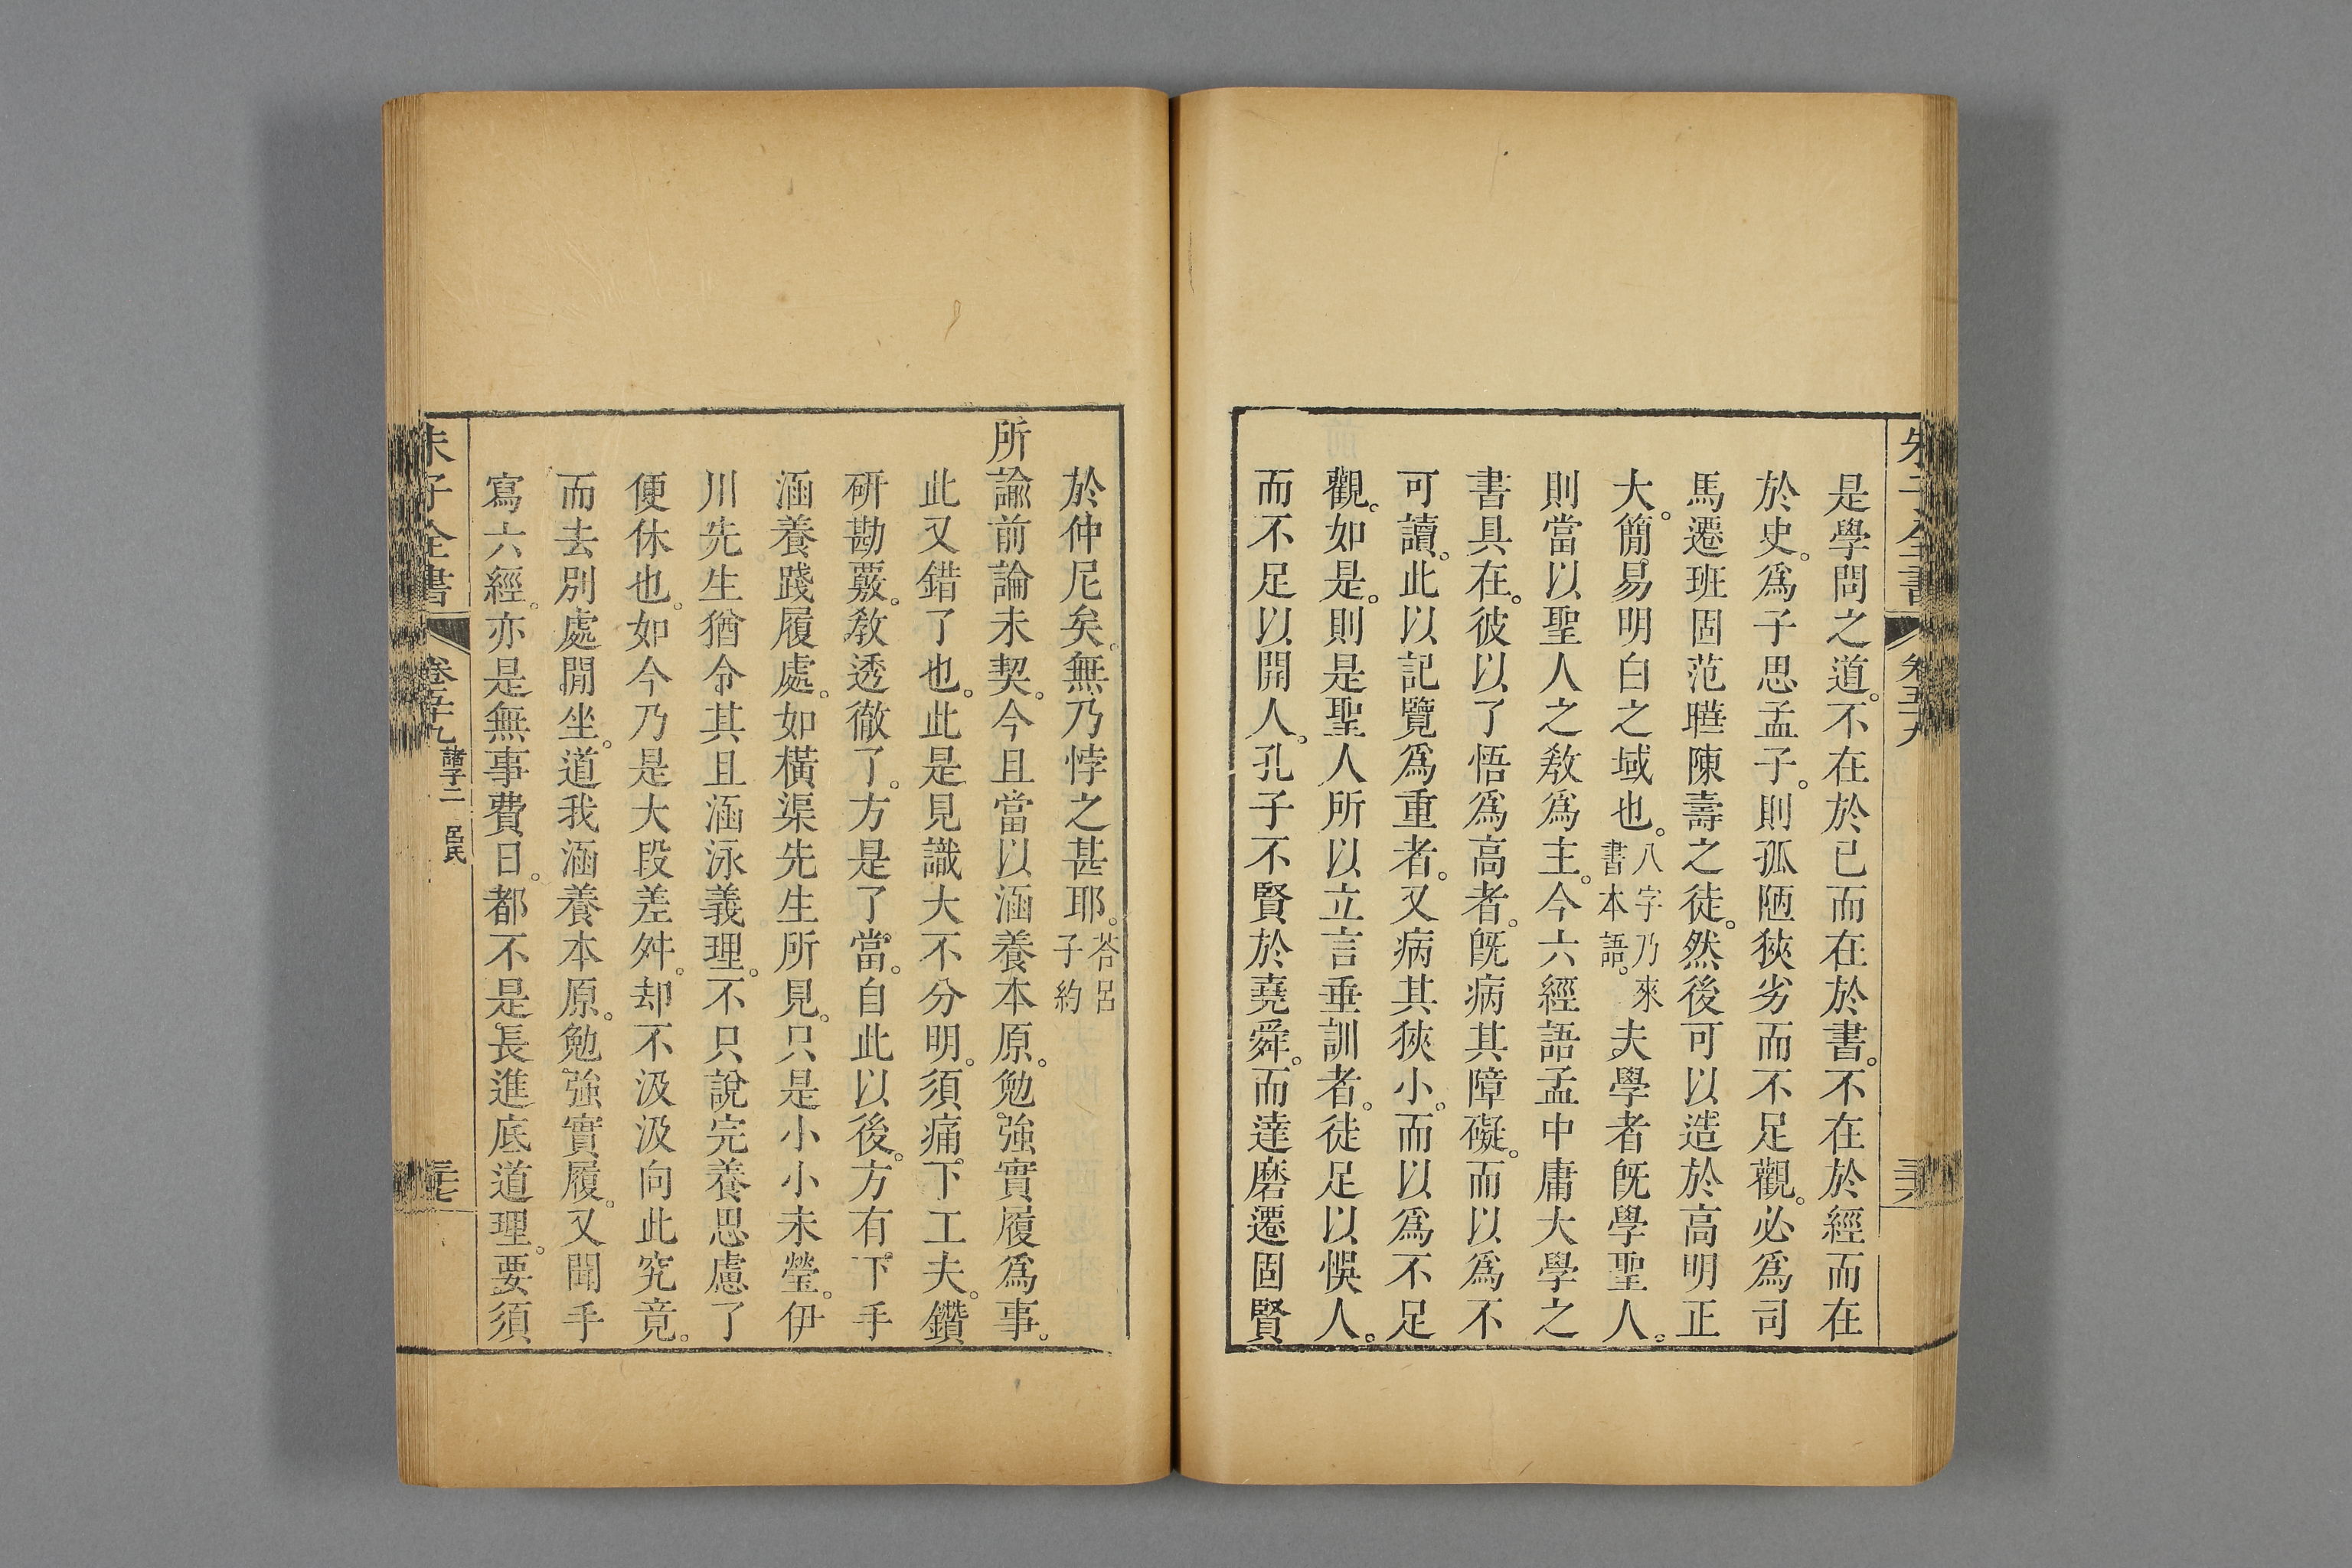 朱子全書 卷五十九
是學問之道。不在於己而在於書。不在於經而在
於史。爲子思孟子。則孤陋狹劣而不足觀。必爲司
馬遷班固范曄陳壽之徒。然後可以造於高明正
大。簡易明白之域也。八字乃來書本語。夫學者旣學聖人。
則當以聖人之敎爲主。今六經語孟中庸大學之
書具在。彼以了悟爲高者。旣病其障礙。而以爲不
可讀。此以記覽爲重者。又病其狹小。而以爲不足
觀。如是。則是聖人所以立言垂訓者。徒足以悞人。
而不足以開人。孔子不賢於堯舜。而達磨遷固賢
於仲尼矣。無乃悖之甚耶。荅呂子約
所諭前論未契。今且當以涵養本原。勉強實履爲事。
此又錯了也。此是見識大不分明。須痛下工夫。鑽
硏勘覈。敎透徹了。方是了當。自此以後。方有下手
涵養踐履處。如橫渠先生所見。只是小小未瑩。伊
川先生猶令其且涵泳義理。不只說完養思慮了
便休也。如今乃是大段差舛。却不汲汲向此究竟。
而去別處閒坐。道我涵養本原。勉強實履。又聞手
寫六經。亦是無事費日。都不是長進底道理。要須
朱子全書 卷五十九 諸子二 呂氏